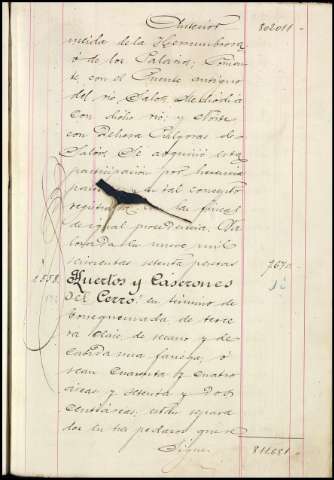 Anterior 802011
meida de la Hermumbrosa
ó de los Palacios; Ponien-
te, con el Puente antiguo
del rio Salor, Mediodia
con dicho rio, y Norte
con Dehesa Pulgosas de
Salor. Se adquirió esta
participación por herencia
y tal concepto
las fincas
de igual procedencia. Va
lorada en nueve mil
seiscientas setenta pesetas 9670
1.558. Huertos y Caserones
del Cerro: en término de
Torrequemada, de terce
ra clase, de secano y de
cabida una fanega, ó
sean cuarenta y cuatro
áreas y setenta y dos
centiáreas; están separa
dos en tres pedazos que se
Sigue. 811.681